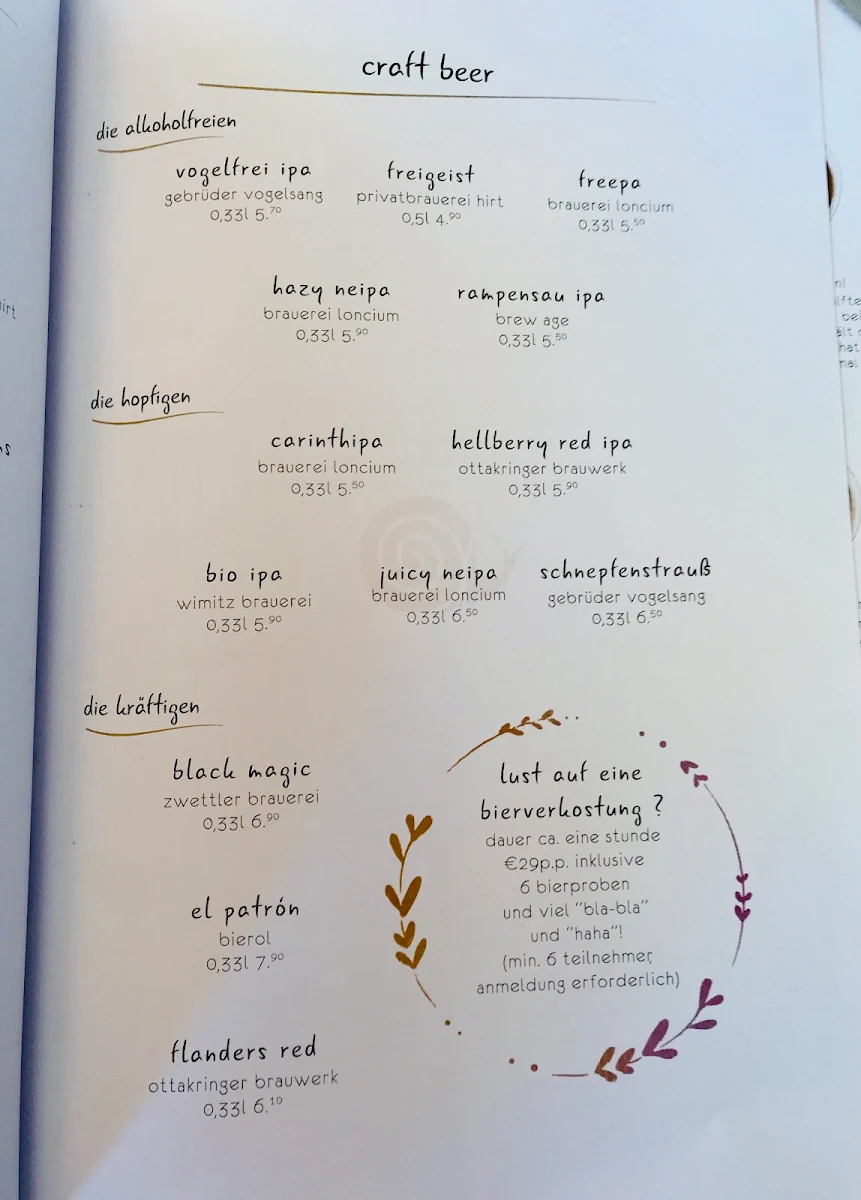 craft beer
die alkoholfreien
vogelfrei ipa
gebrüder vogelsang
0,33l 5.70
freigeist
privatbrauerei hirt
0,5l 4.90
freepa
brauerei loncium
0,33l 5.50
hazy neipa
brauerei loncium
0,33l 5.90
rampensau ipa
brew age
0,33l 5.50
die hopfigen
carinthipa
brauerei loncium
0,33l 5.50
hellberry red ipa
ottakringer brauwerk
0,33l 5.90
bio ipa
wimitz brauerei
0,33l 5.90
juicy neipa
brauerei loncium
0,33l 6.50
schnepfenstrauß
gebrüder vogelsang
0,33l 6.50
die kräftigen
black magic
zwettler brauerei
0,33l 6.90
el patrón
bierol
0,33l 7.90
flanders red
ottakringer brauwerk
0,33l 6.10
lust auf eine
bierverkostung ?
dauer ca. eine stunde
€29p.p. inklusive
6 bierproben
und viel "bla-bla"
und "haha"!
(min. 6 teilnehmer,
anmeldung erforderlich)